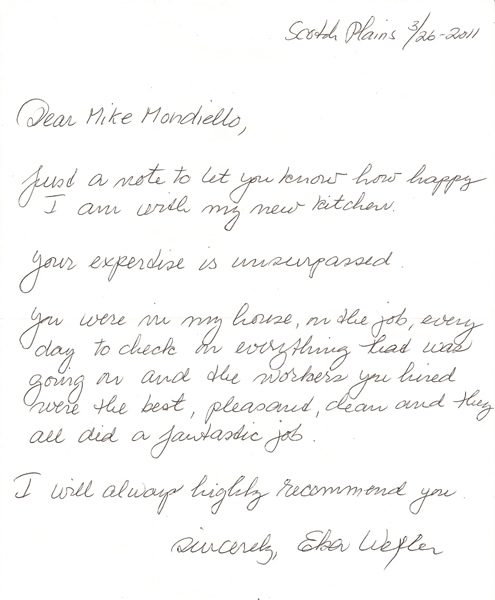 Scotch Plains 3/26-2011
Dear Mike Mondiello,
Just a note to let you know how happy
I am with my new kitchen.
Your expertise is unsurpassed.
You were in my house, on the job, every
day to check on everything that was
going on and the workers you hired
were the best, pleasant, clean and they
all did a fantastic job.
I will always highly recommend you.
Sincerely,